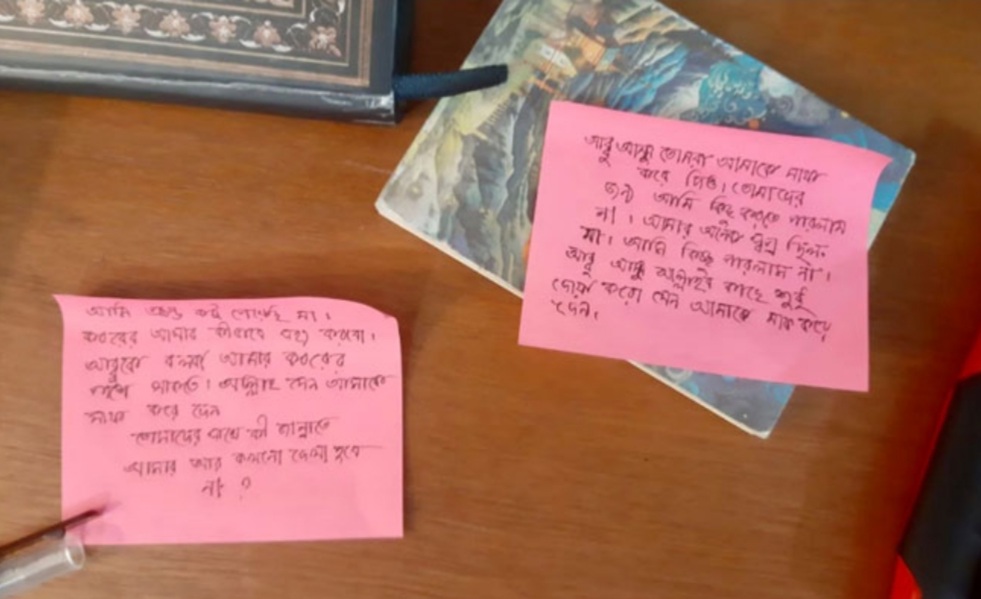 আব্বু আম্মু তোমরা আমাকে মাফ
করে দিও। তোমাদের
জন্য আমি কিছু করতে পারলাম
না। আমার অনেক স্বপ্ন ছিল
মা। আমি কিছু পারলাম না।
আব্বু আম্মু আল্লাহর কাছে শুধু
দোয়া করো যেন আমাকে মাফ করে
দেন।
আমি অনেক কষ্ট পেয়েছি মা।
কবরের আমার কীভাবে সহ্য করবো।
আব্বুকে বলবা আমার কবরের
পাশে থাকতে। আল্লাহ যেন আমাকে
মাফ করে দেন
তোমাদের সাথে কী জান্নাতে
আমার আর কখনো দেখা হবে
না?